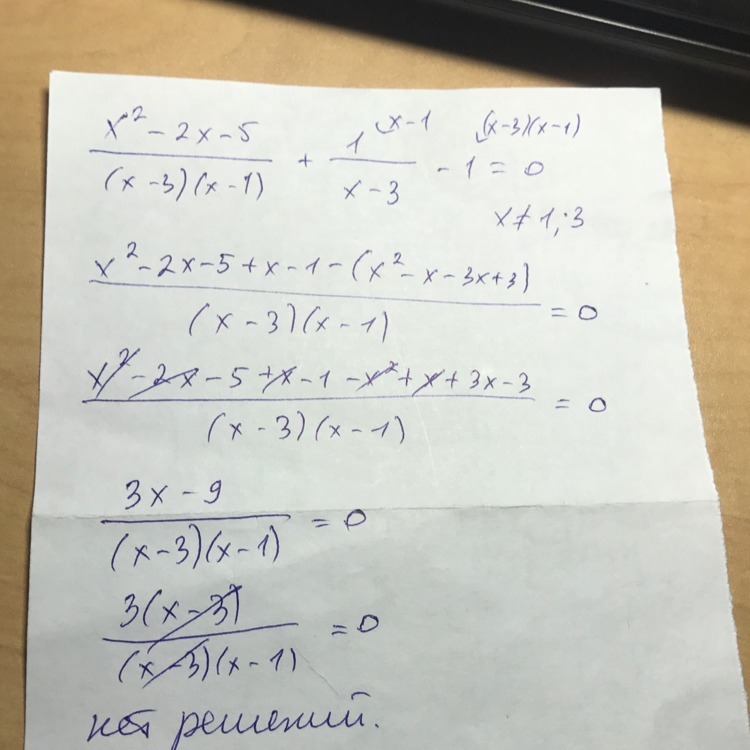 x² - 2x - 5 / (x - 3)(x - 1) + 1 ⌣x - 1 / x - 3 - 1 ⌣(x - 3)(x - 1) = 0
x ≠ 1; 3
x² - 2x - 5 + x - 1 - (x² - x - 3x + 3) / (x - 3)(x - 1) = 0
x² - 2x - 5 + x - 1 - x² + x + 3x - 3 / (x - 3)(x - 1) = 0
3x - 9 / (x - 3)(x - 1) = 0
3(x - 3) / (x - 3)(x - 1) = 0
нет решений.